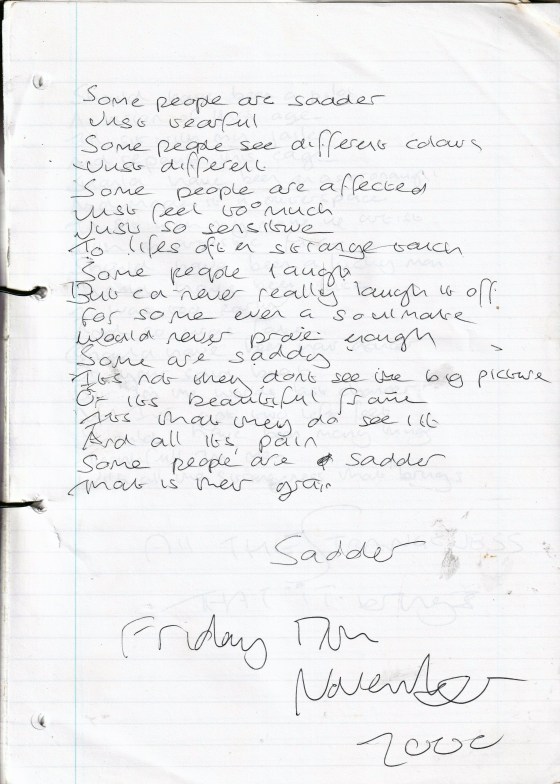 Some people are sadder
Just tearful
Some people see different colours
Just different
Some people are affected
Just feel too much
Just so sensitive
To lifes often strange touch
Some people laugh
But can never really laugh it off
For some even a soulmate
Would never prove enough
Some are saddy
Its not they dont see the big picture
Or its beautiful frame
Its that they do see it
And all its pain
Some people are sadder
That is their grain
Sadder
Friday 17th
November
2000